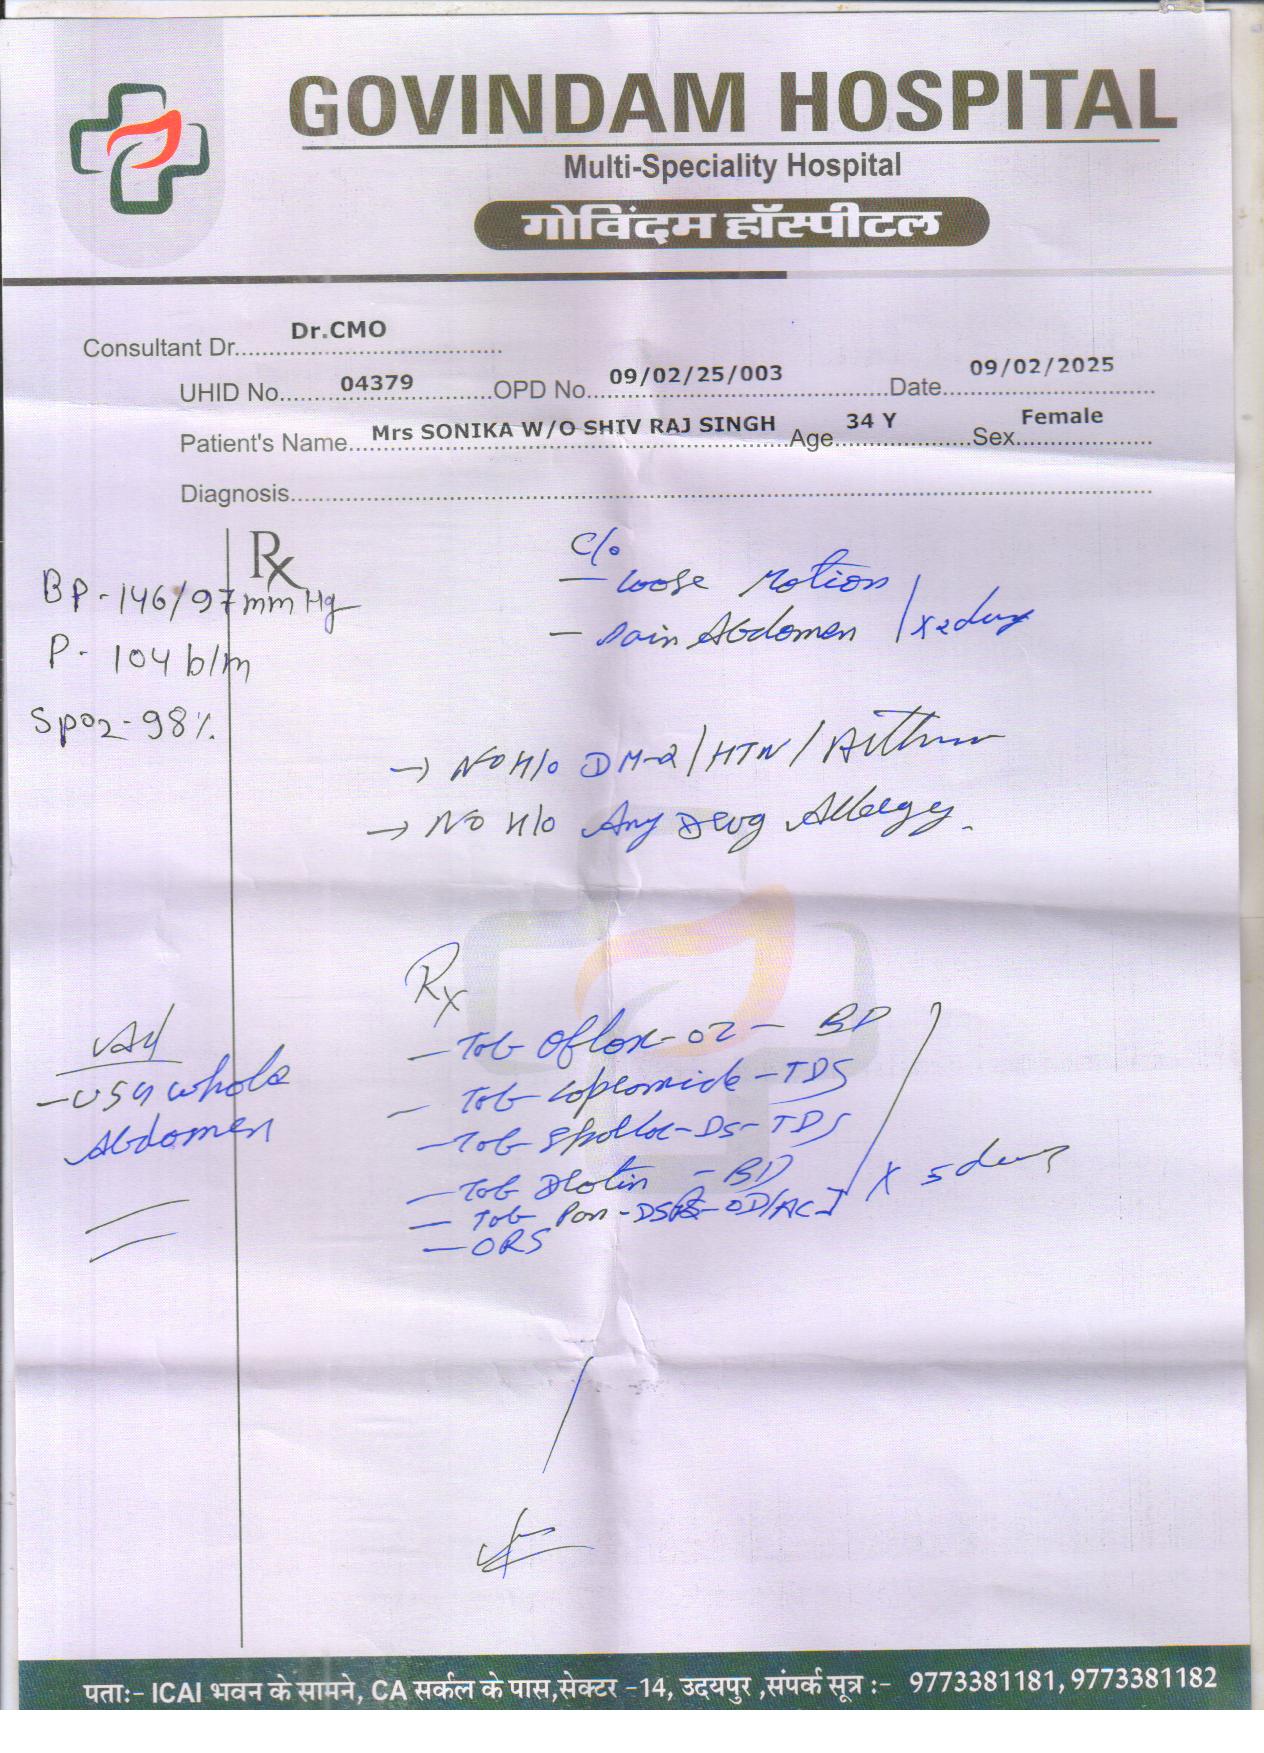 GOVINDAM HOSPITAL
Multi-Speciality Hospital
गोविंदम हॉस्पीटल
Consultant Dr. Dr.CMO
UHID No. 04379 OPD No. 09/02/25/003 Date 09/02/2025
Patient's Name Mrs SONIKA W/O SHIV RAJ SINGH Age 34 Y Sex Female
Diagnosis
Rx
BP - 146/97 mmHg
P - 104 b/m
SpO2 - 98%
C/o
- Loose Motion
- Pain Abdomen / x 2 days
→ No H/o DM-2 / HTN / Asthma
→ No H/o Any Drug Allergy.
Rx
- Tab Oflox-OZ - BD
- Tab Loperamide - TDS
- Tab - DS - TDS
- Tab - BD
- Tab Pan - DSR - OD/AC
x 5 days
- ORS
Adv
- USG whole
Abdomen
पताः- ICAI भवन के सामने, CA सर्कल के पास,सेक्टर -14, उदयपुर ,संपर्क सूत्र :- 9773381181, 9773381182